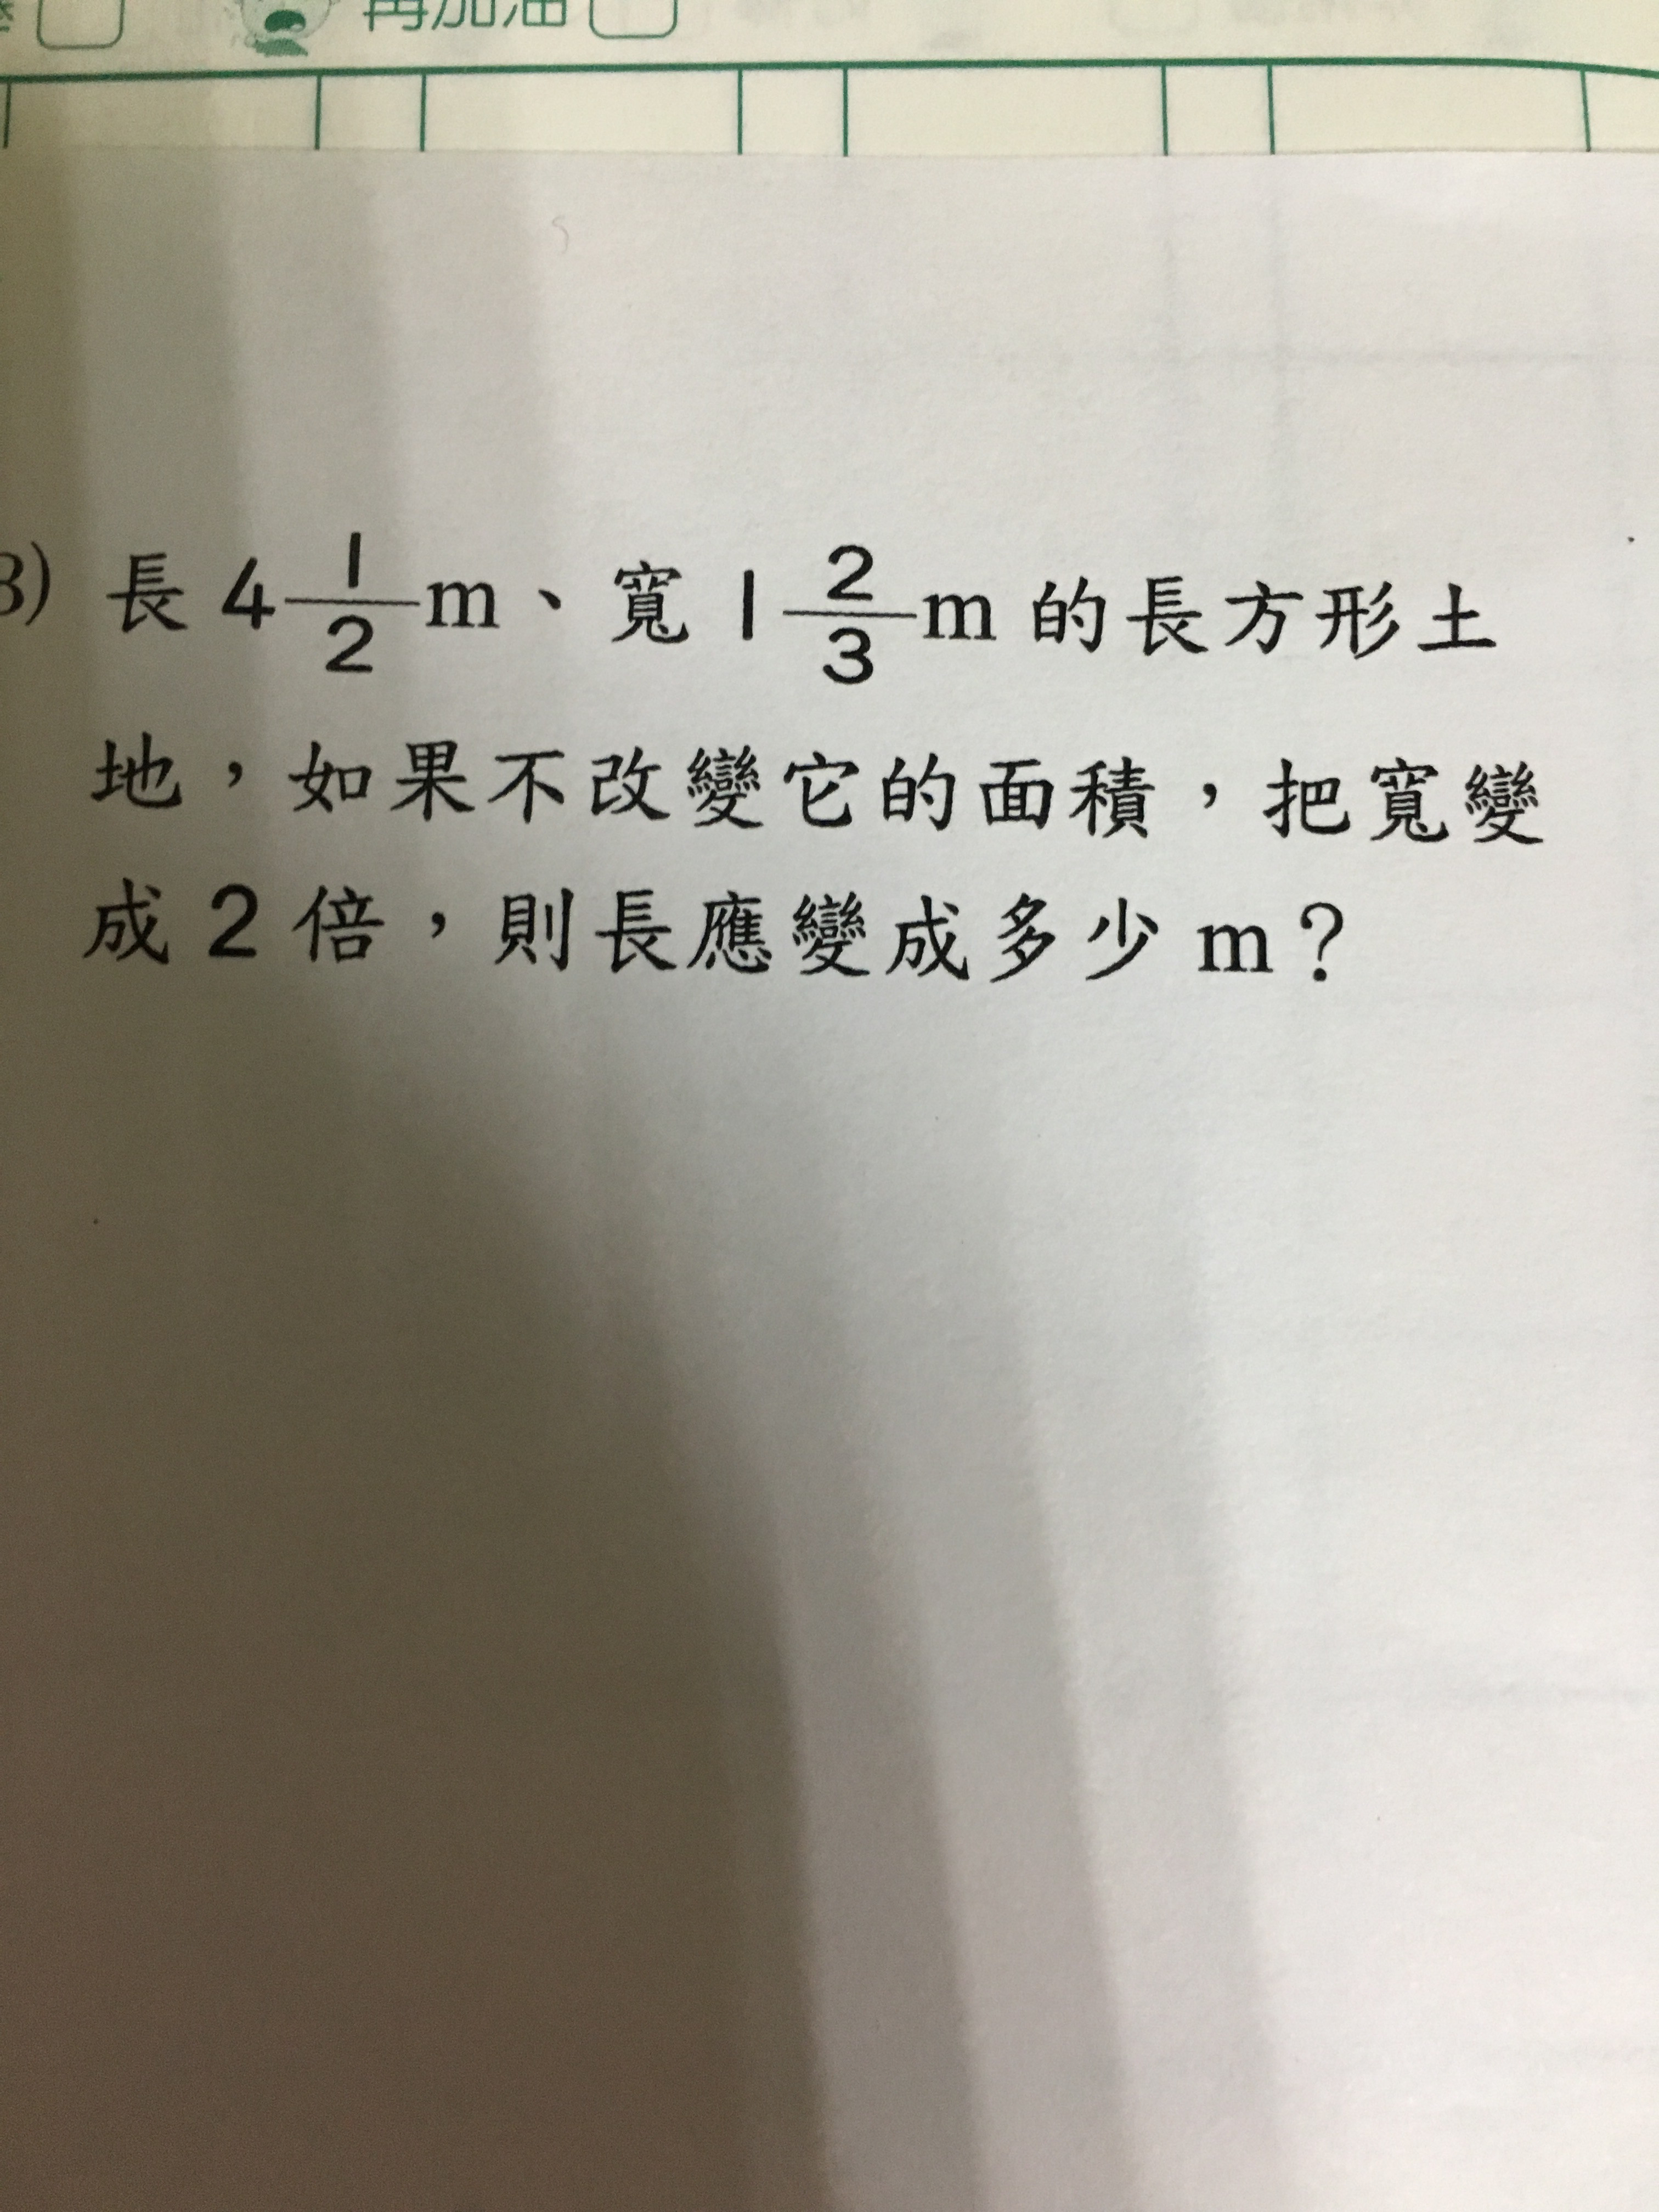 再加油
3) 長 4 1/2 m、寬 1 2/3 m 的長方形土
地，如果不改變它的面積，把寬變
成 2 倍，則長應變成多少 m？